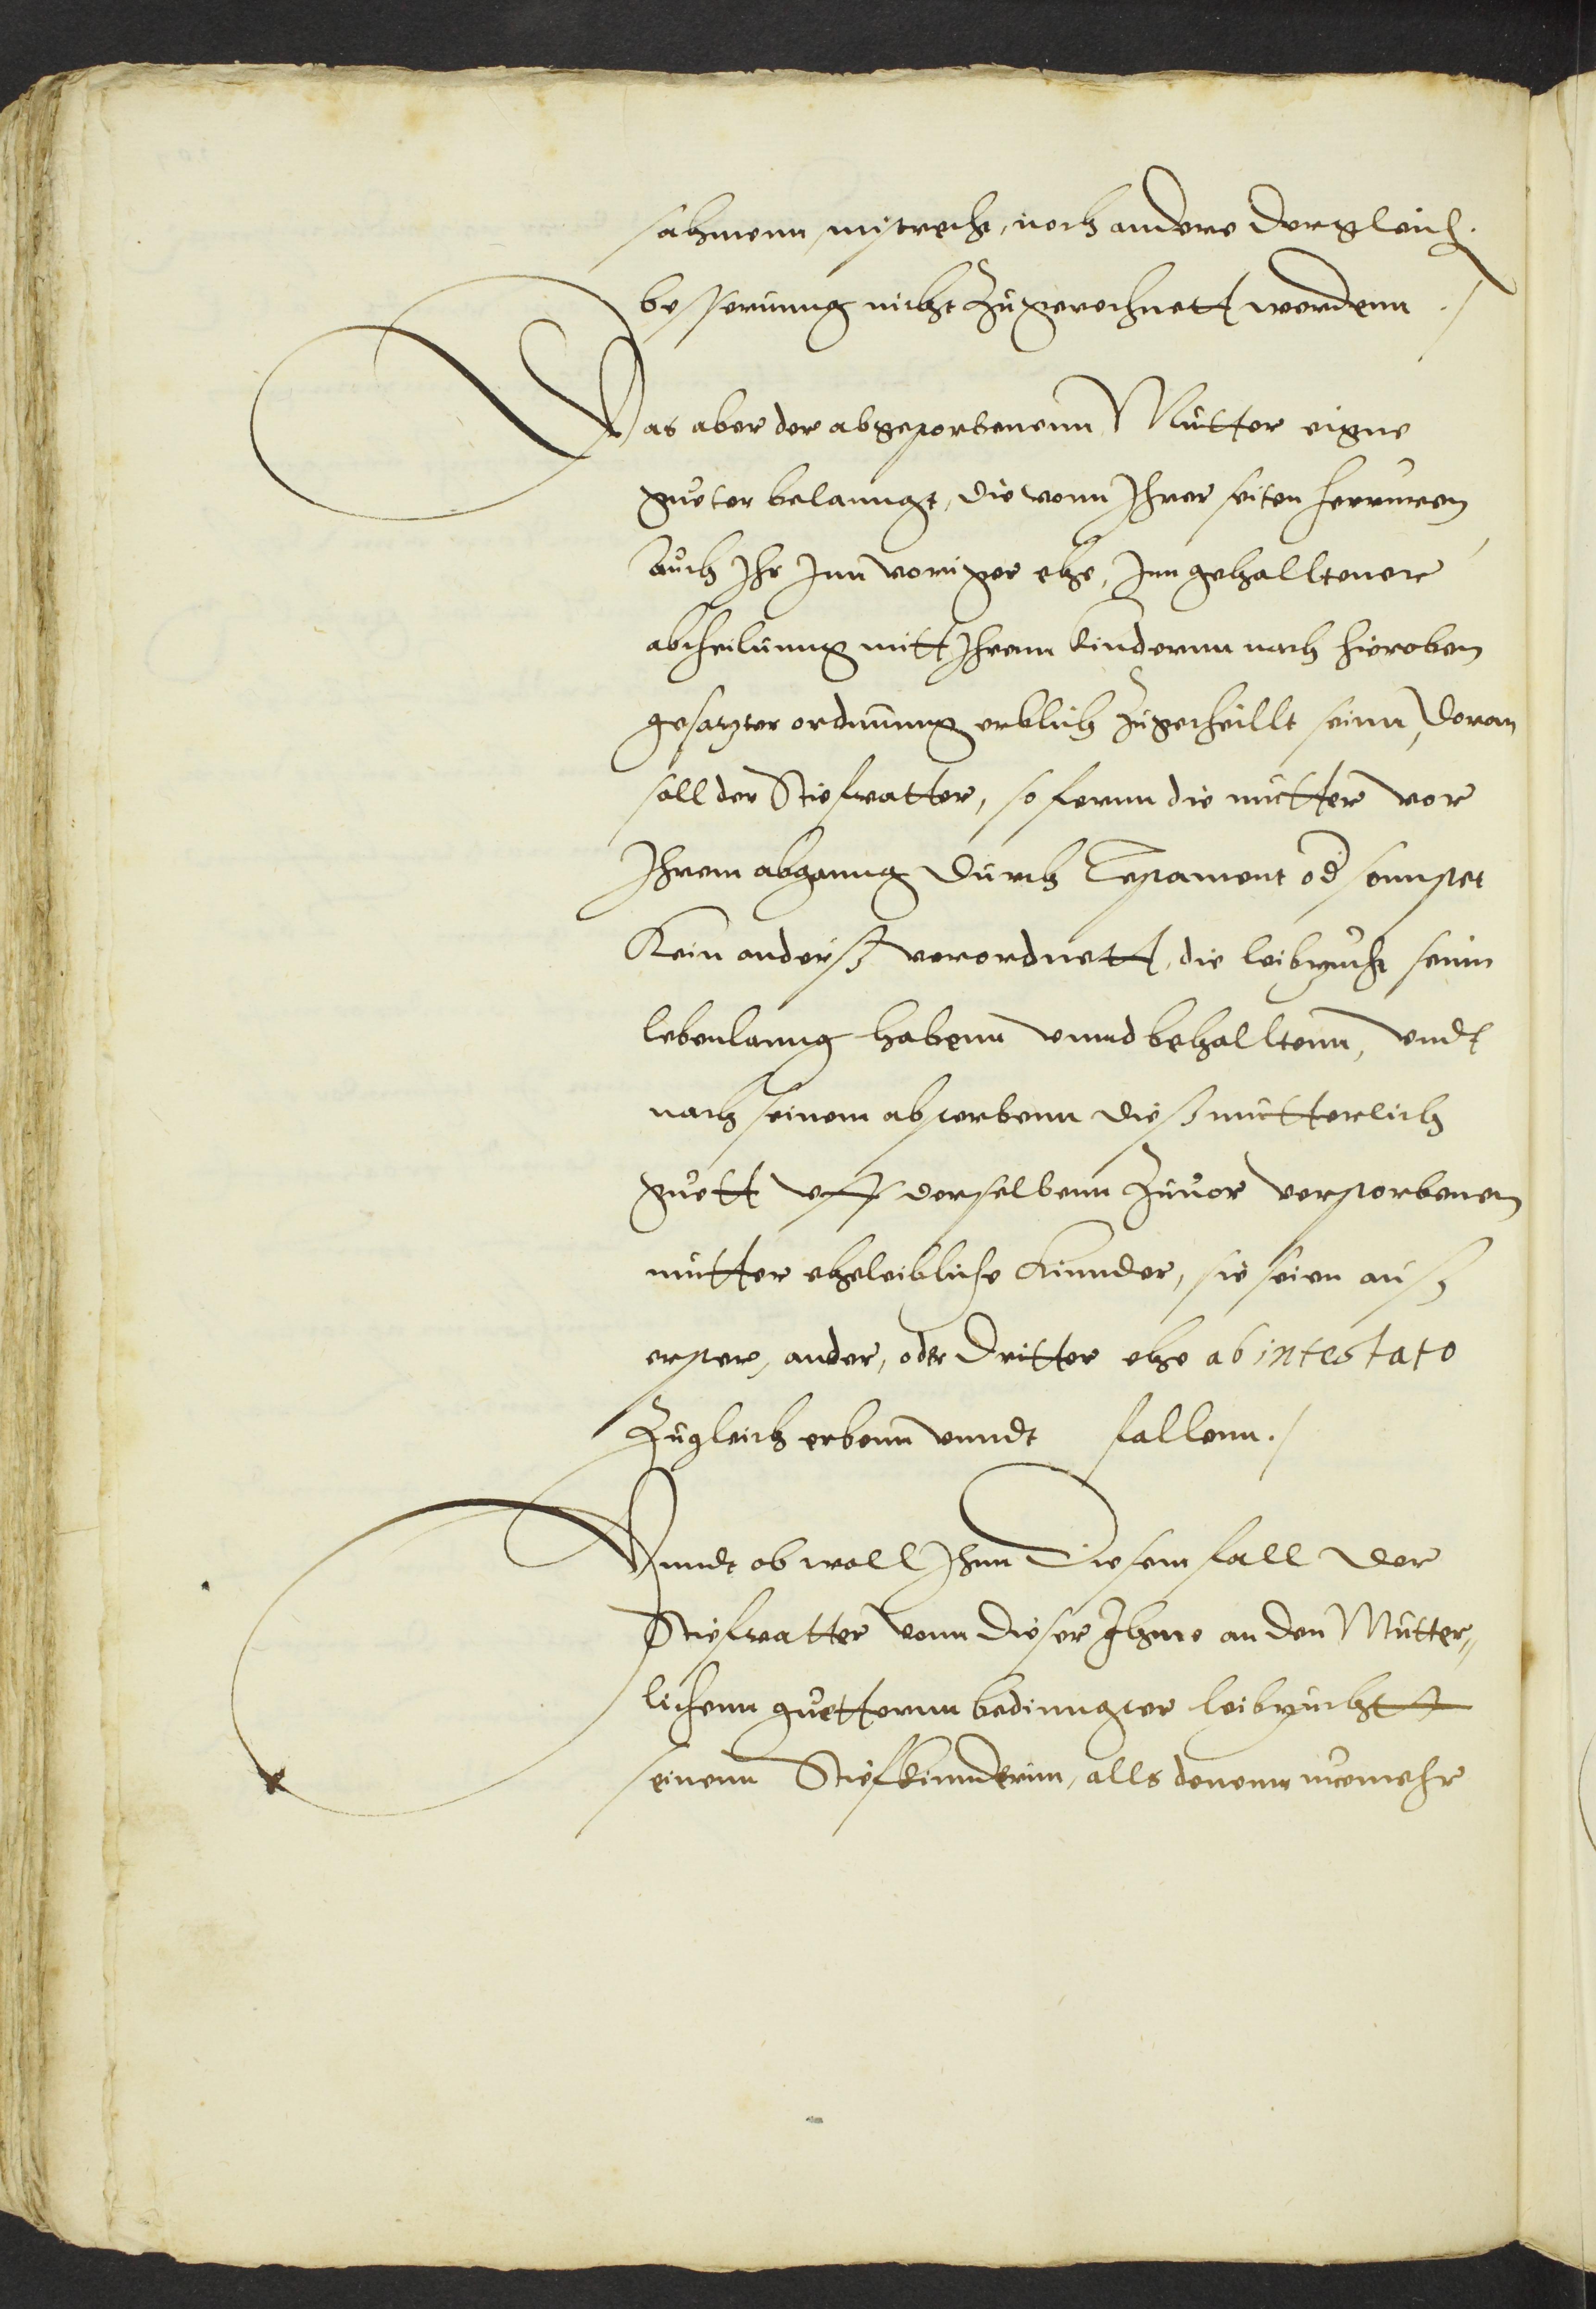 sahmenn, mistrecht, noch andere dergleich.
besserunng nicht zugerechnett werdenn ./
Was aber der abgestorbenenn Mutter eigne
gueter belanngt, die vonn Ihrer seiten herruren,
auch Ihr Inn voriger ehe, Inn gehalltener
abtheilunng mitt Ihrenn kindernn nach hieroben
gesatzter ordnunng erblich zugetheillt seinn, doran
soll der Stiefvatter, so fernn die mutter vor
Ihrem abganng durch Testament od sonnstet
kein anderß verordnett, die leibzucht seinn
lebenlanng habenn vnnd behalltenn, vndt
nach seinem absterbenn dieß mutterlich
guett vff derselbenn zuuor verstorbenen
mutter eheleibliche kinnder, sie seien auß
erster, ander, oder dritter ehe ab intestato
zugleich erbenn vnndt fallenn ./
Vnndt ob woll Ihnn diesem fall der
Stiefvatter vonn dieser Ihme an den Mutter„
lichenn guetternn bedinngter leibzucht
seinenn Stiefkinnderinn, alls denenn nuemehr